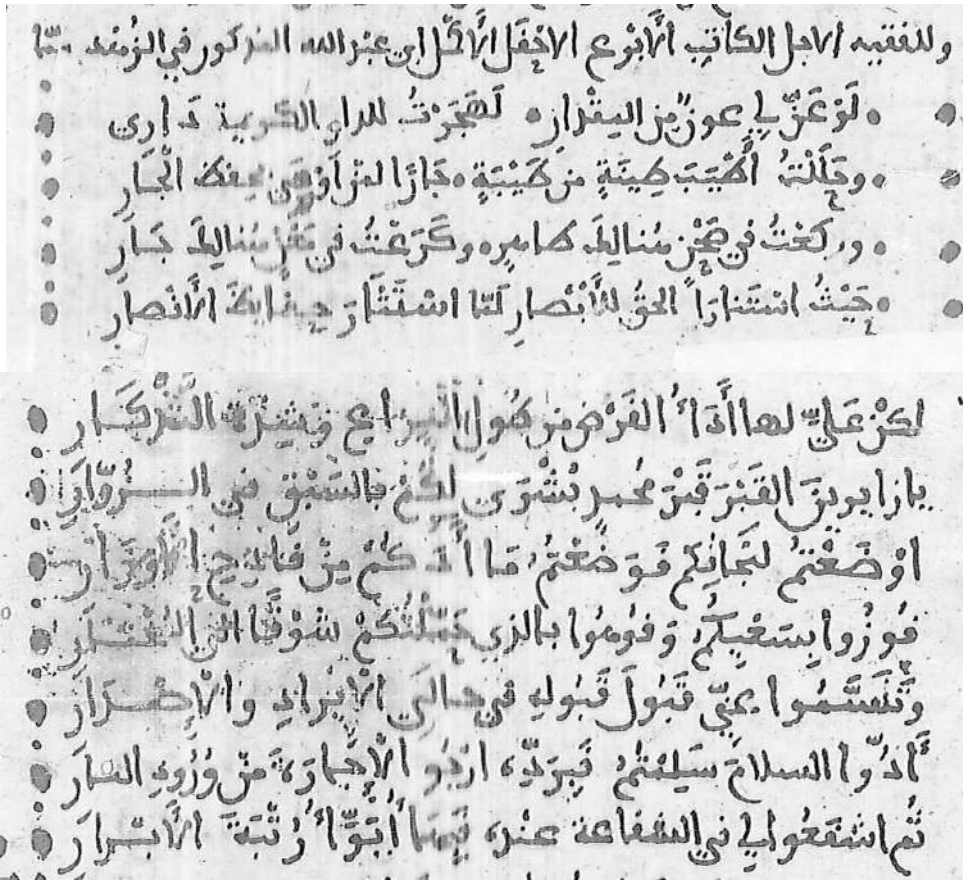 وللفقيه الاجل الكاتب الابرع الاحفل الاكمل ابي عبد الله المذكور في الزهد
لَوْ عَنَّ لي عونٌ من المقْدار لَهَجَرْتُ للدار الكريمة دَاري
وحَلَلْتُ أَطْيَبَ طِينَةٍ من طَيْبَةٍ جَارًا لمن أوصى بحفظ الجَارِ
وركعْتُ في صَحْنٍ هُنالِكَ طاهرٍ وكَرَعْتُ في هُنالِكَ جَارِ
حَيْثُ استنارَ الحقُّ للأَبْصارِ لمّا اسْتَثَارَ حفائظَ الأَنْصارِ
لكنْ عَلَيَّ لها أَدَاءُ الفَرْضِ من طُولِ وشِدّة التَّذْكَارِ
يا زايرينَ القَبْرَ قَبْرَ محمدٍ بُشْرَى لكُمْ بالسَّبْقِ في الزُّوَّارِ
اوْضَعْتُمُ لنَجَاتِكم فوَضَعْتُمُ مَا آدَكُمْ مِنْ فادِحِ الأَوْزَارِ
فُوزُوا بِسَعْيِكُمُ وفُوهُوا بالذي حَمَّلْتُكُمْ شَوْقًا الى المُخْتَارِ
وتَنَسَّمُوا قَبُولَ قَبُولِهِ في حالَيِ الْايرَادِ والْاصْدَارِ
أَدُّوا السلامَ سَلِمْتُمُ فَبِرَدِّهِ ارْجُو الْاجَارَةَ مِنْ وُرُودِ النارِ
ثُم اشفَعُوا لي في الشفاعة عندهُ رُتْبَةَ الأَبْرَارِ